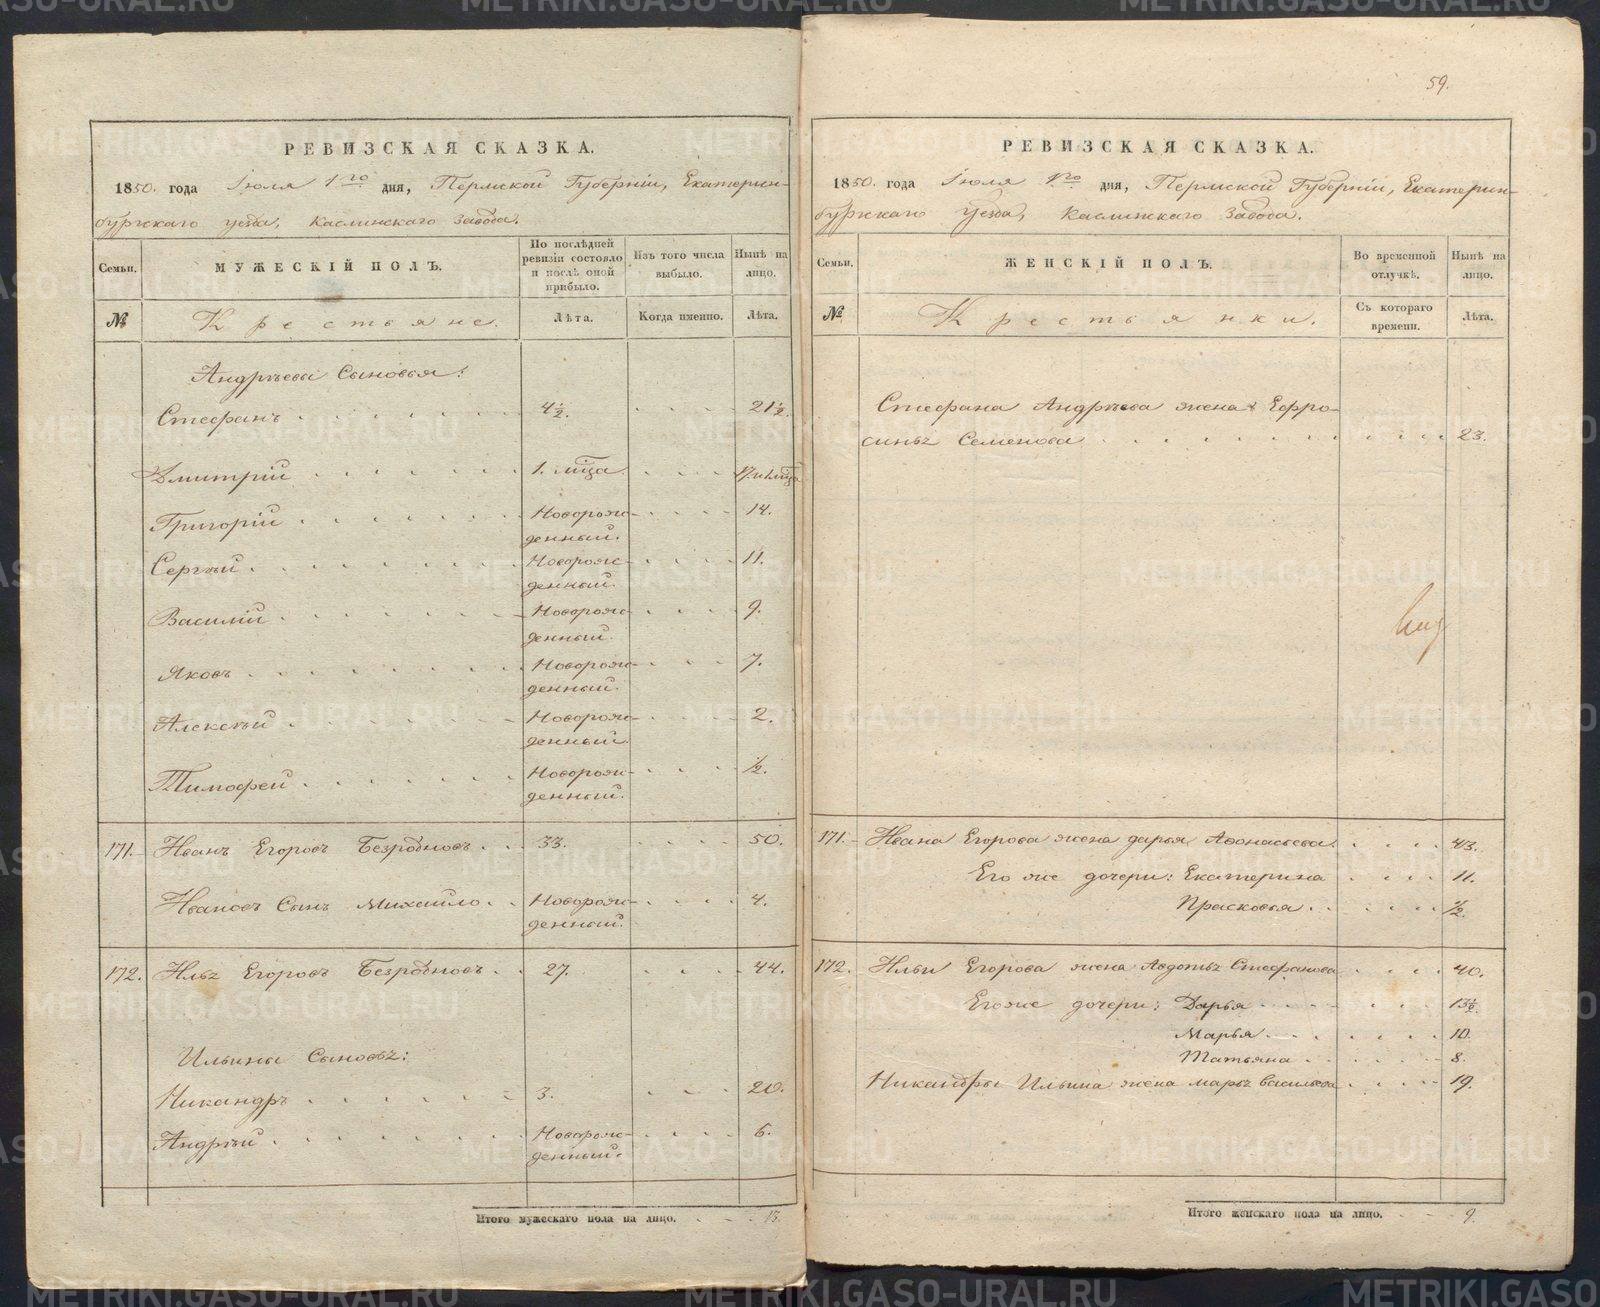 РЕВИЗСКАЯ СКАЗКА.
1850. года Іюля 1го дня, Пермской Губерніи, Екатерин-
бургскаго уезда, Каслинскаго завода.
Семьи.
МУЖЕСКІЙ ПОЛЪ.
По послѣдней ревизіи состояло и послѣ оной прибыло.
Изъ того числа выбыло.
Нынѣ на лицо.
№
Крестьяне.
Лѣта.
Когда именно.
Лѣта.
Андрѣевы Сыновья:
Стефанъ 4½. 21½.
Дмитрій 1. мца
Григорій Новорож- 14.
денный.
Сергѣй Новорож- 11.
денный.
Василій Новорож- 9.
денный.
Яковъ Новорож- 7.
денный.
Алексѣй Новорож- 2.
денный.
Тимофей Новорож- ½.
денный.
171. Иванъ Егоровъ Безродновъ 33. 50.
Ивановъ Сынъ Михайло Новорож- 4.
денный.
172. Илья Егоровъ Безродновъ 27. 44.
Ильины Сыновья:
Никандръ 3. 20.
Андрѣй Новорож- 6.
денный.
Итого мужескаго пола на лицо. 13.
59.
РЕВИЗСКАЯ СКАЗКА.
1850. года Іюля 1го дня, Пермской Губерніи, Екатерин-
бургскаго Уезда, Каслинскаго Завода.
Семьи.
ЖЕНСКІЙ ПОЛЪ.
Во временной отлучкѣ.
Нынѣ на лицо.
№
Крестьянки.
Съ котораго времени.
Лѣта.
Стефана Андрѣева жена Ефро-
синья Семенова 23.
171. Ивана Егорова жена дарья Афонасьева 43.
Его же дочери: Екатерина 11.
Прасковья ½.
172. Ильи Егорова жена Авдотья Стефанова 40.
Его же дочери: Дарья 13½.
Марья 10.
Татьяна 8.
Никандры Ильина жена марья васильева 19.
Итого женскаго пола на лицо. 9.
METRIKI.GASO-URAL.RU